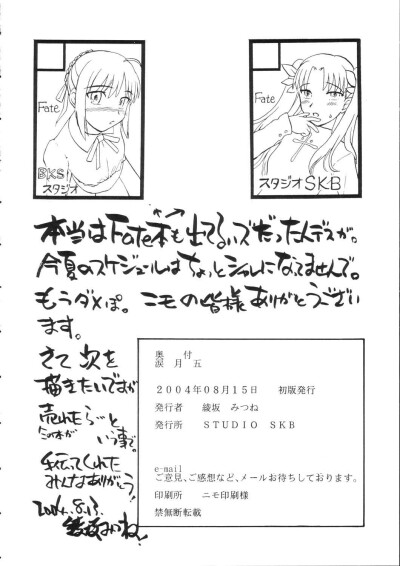 Fate
BKS
スタジオ
Fate
スタジオSKB
本当はFate本も出てるハズだったんデスが。
今夏のスケジュールはちょっとシャレになってませんで。
もうダメぽ。ニモの皆様ありがとうござい
ます。
さて次を
描きたいですが
売れたら…と
この本が
いう事で。
手伝ってくれた
みんなありがとう!
2004.8.13.
綾坂みつね!
奥 付
涙 月 五
2004年08月15日 初版発行
発行者 綾坂 みつね
発行所 STUDIO SKB
e-mail
ご意見、ご感想など、メールお待ちしております。
印刷所 ニモ印刷様
禁無断転載